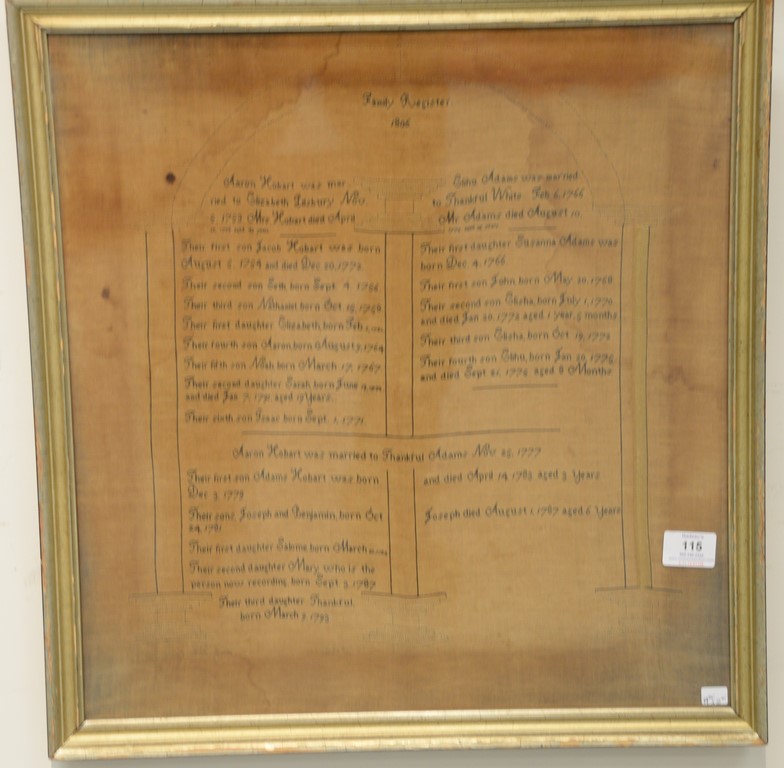 Family Register
1806
Aaron Hobart was mar
ried to Elizabeth Nov.
Mrs Hobart died April
Elihu Adams was married
to Thankful White Feb 6, 1766
Mr Adams died August 10.
Their first son Jacob Hobart was born
August 1754 and died Dec 20, 1772
Their second son Seth born Sept. 4. 1756
Their third son Nathaniel born Oct 1758
Their first daughter Elizabeth born Feb
Their fourth son Aaron born August 1764
Their fifth son Noah born March 17, 1767
Their second daughter Sarah born June
and died Jan 7, 1791 aged 19 Years
Their sixth son Isaac born Sept. 1, 1771.
Their first daughter Susanna Adams was
born Dec 4, 1766
Their first son John born May 20, 1768
Their second son Elisha, born July 1, 1770
and died Jan 20, 1772 aged 1 year, 5 months
Their third son Elisha, born Oct 1772
Their fourth son Elihu, born Jan 20, 1775
and died Sept 21, 1775 aged 8 Months
Aaron Hobart was married to Thankful Adams Nov 25, 1777
Their first son Adams Hobart was born
Dec 3, 1779
and died April 14, 1783 aged 3 Years
Their sons Joseph and Benjamin, born Oct
24, 1781
Joseph died August 1, 1787 aged 5 Years
Their first daughter Sabina born March
Their second daughter Mary who is the
person now recording born Sept 3, 1787
Their third daughter Thankful
born March 1793
115